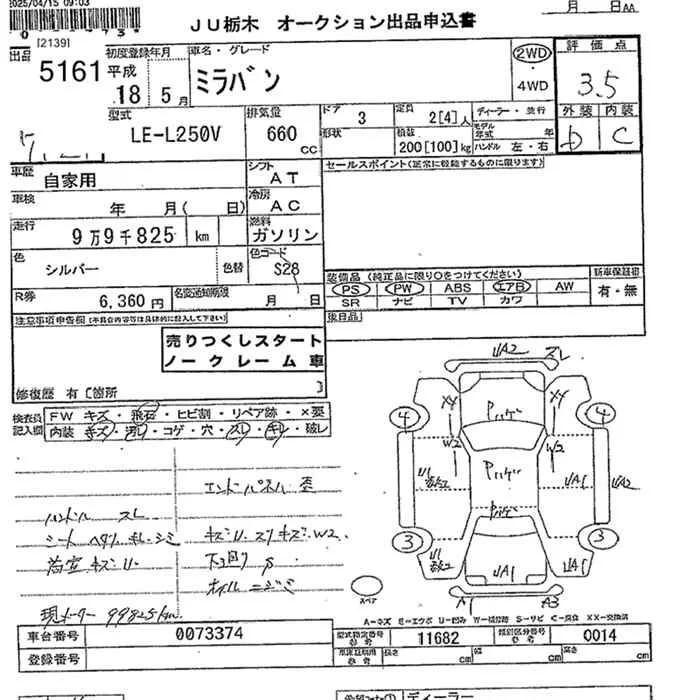 2025/04/15 09:03
月 日AA
JU栃木 オークション出品申込書
[2139]
出品
5161
初度登録年月
平成
18 5月
車名・グレード
ミラバン
2WD
・
4WD
評価点
3.5
外装 内装
b C
型式
LE-L250V
排気量
660
cc
ドア
3
定員
2[4]人
ディーラー・並行
形状
積載
200[100]kg
モデル年式 年
ハンドル 左・右
車歴
自家用
シフト
AT
セールスポイント(正常に機能するものに限ります)
車検
年 月( 日)
冷房
AC
走行
9万9千825 km
燃料
ガソリン
色
シルバー
色替
色コード
S28
装備品(純正品に限り○をつけてください)
新車保証書
PS PW ABS エアB AW
有・無
SR ナビ TV カワ
R券
6,360円
名変通知期限
月 日
後日品
注意事項申告欄
売りつくしスタート
ノークレーム車
修復歴 有〔箇所 〕
検査員
記入欄
FW キズ・飛石・ヒビ割・リペア跡・×要
内装 キズ・汚レ・コゲ・穴・スレ・キレ・破レ
エンドパネル 歪
ハンドル スレ
シート ヘタリ キレ シミ
キズU スリキズ W2
荷室 キズU
下回り S
オイルニジミ
現メーター 99825km
UA2 スレ
XY XY
4 4
W2 W2
UA1 UA1
3 3
UA1
UA1
A1 A3
スペア
A=キズ E=エクボ U=凹み W=補修跡 S=サビ C=腐食 XX=交換済
車台番号
0073374
型式指定番号
参考
11682
類別区分番号
参考
0014
登録番号
長さ cm 幅 cm 高さ cm
ディーラー